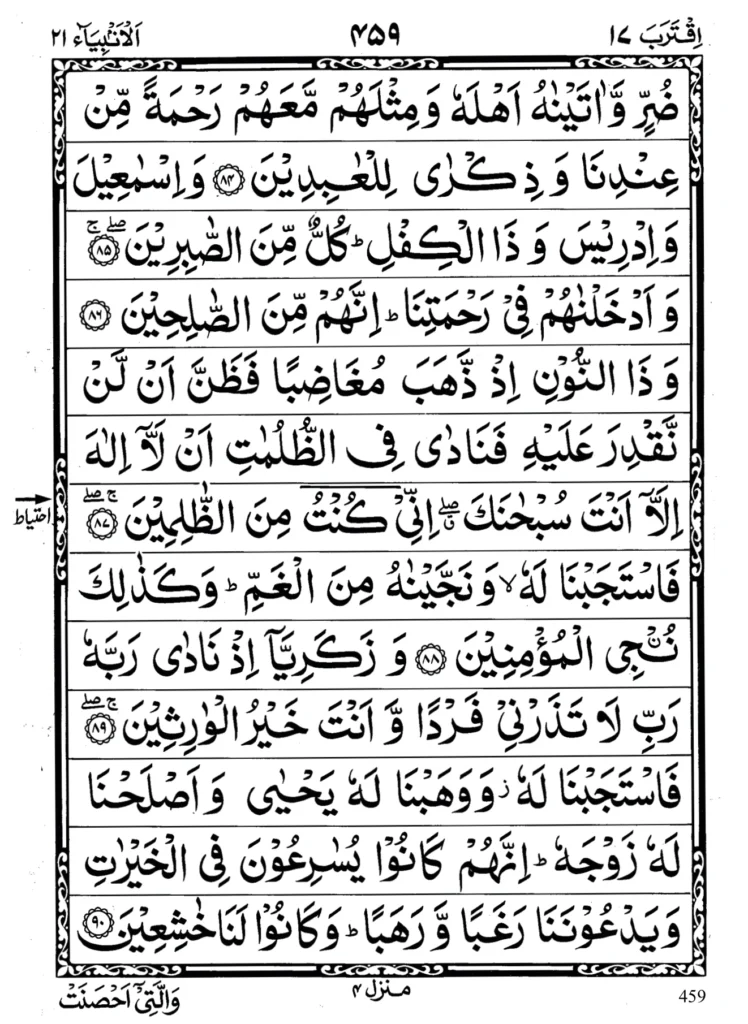 اِقْتَرَبَ ١٧
۴۵۹
اَلْاَنْۢبِيَآء ٢١
ضُرٍّ وَّاٰتَيْنٰهُ اَهْلَهٗ وَمِثْلَهُمْ مَّعَهُمْ رَحْمَةً مِّنْ
عِنْدِنَا وَ ذِكْرٰى لِلْعٰبِدِيْنَ ﴿۸۴﴾ وَاِسْمٰعِيْلَ
وَاِدْرِيْسَ وَ ذَا الْكِفْلِ ؕ كُلٌّ مِّنَ الصّٰبِرِيْنَ ﴿۸۵﴾ ج صلے
وَ اَدْخَلْنٰهُمْ فِيْ رَحْمَتِنَا ؕ اِنَّهُمْ مِّنَ الصّٰلِحِيْنَ ﴿۸۶﴾
وَ ذَا النُّوْنِ اِذْ ذَّهَبَ مُغَاضِبًا فَظَنَّ اَنْ لَّنْ
نَّقْدِرَ عَلَيْهِ فَنَادٰى فِى الظُّلُمٰتِ اَنْ لَّاۤ اِلٰهَ
اِلَّاۤ اَنْتَ سُبْحٰنَكَ ۖ اِنِّيْ كُنْتُ مِنَ الظّٰلِمِيْنَ ﴿۸۷﴾ ج صلے
احتياط
فَاسْتَجَبْنَا لَهٗ ۙ وَنَجَّيْنٰهُ مِنَ الْغَمِّ ؕ وَكَذٰلِكَ
نُـنْۨجِى الْمُؤْمِنِيْنَ ﴿۸۸﴾ وَ زَكَرِيَّاۤ اِذْ نَادٰى رَبَّهٗ
رَبِّ لَا تَذَرْنِيْ فَرْدًا وَّ اَنْتَ خَيْرُ الْوٰرِثِيْنَ ﴿۸۹﴾ ج صلے
فَاسْتَجَبْنَا لَهٗ ز وَوَهَبْنَا لَهٗ يَحْيٰى وَاَصْلَحْنَا
لَهٗ زَوْجَهٗ ؕ اِنَّهُمْ كَانُوْا يُسٰرِعُوْنَ فِى الْخَيْرٰتِ
وَيَدْعُوْنَنَا رَغَبًا وَّ رَهَبًا ؕ وَكَانُوْا لَنَا خٰشِعِيْنَ ﴿۹۰﴾
459
منزل ۴
وَالَّتِيْۤ اَحْصَنَتْ